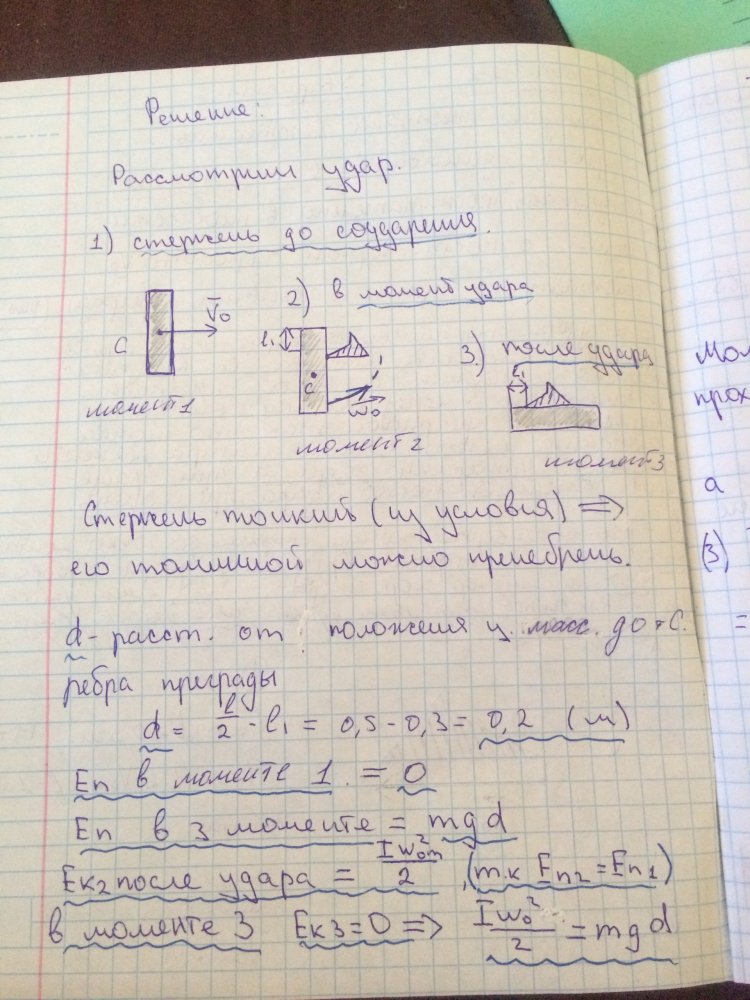 Решение:
Рассмотрим удар.
1) стержень до соударения.
C
V̅₀
момент 1
2) в момент удара
l₁
C
w₀
момент 2
3) после удара
l₁
момент 3
Стержень тонкий (из условия) ⟹
его толщиной можно пренебречь.
d - расст. от положения ц. масс. до т.С.
ребра преграды
d = l/2 - l₁ = 0,5 - 0,3 = 0,2 (м)
Eп в моменте 1 = 0
Eп в 3 моменте = mgd
Eк₂ после удара = Iw₀²/2, (т.к Eп₂ = Eп₁)
в моменте 3 Eк₃ = 0 ⟹ Iw₀²/2 = mgd
Мол
прох
а
(3)
=